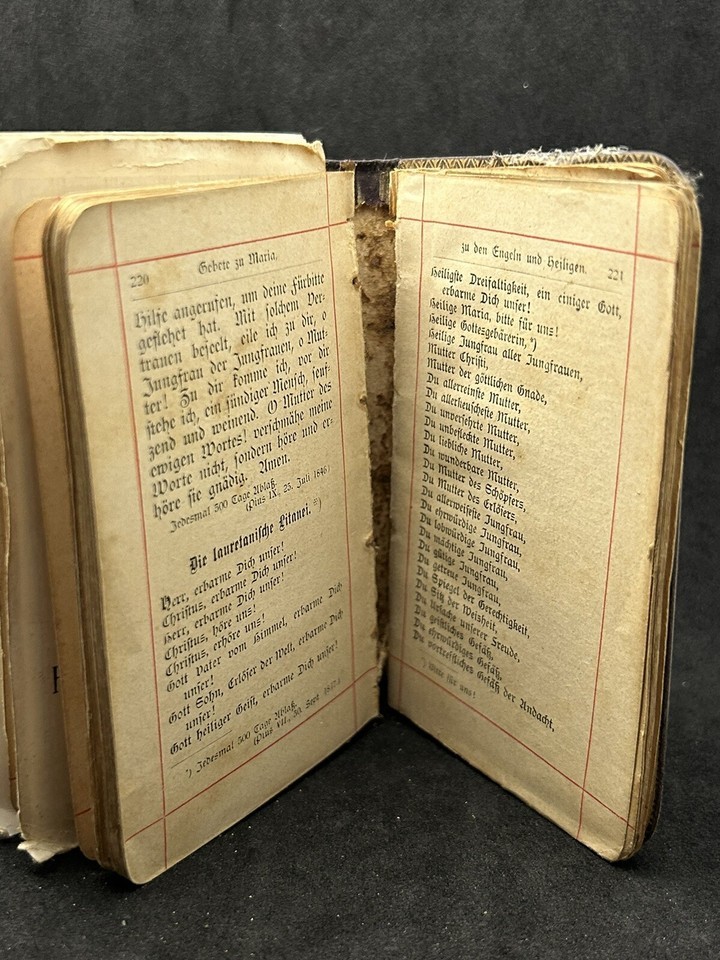 220
Gebete zu Maria,
Hilfe angerufen, um deine Fürbitte
geflehet hat. Mit solchem Ver-
trauen beseelt, eile ich zu dir, o
Jungfrau der Jungfrauen, o Mut-
ter! Zu dir komme ich, vor dir
stehe ich, ein sündiger Mensch, seuf-
zend und weinend. O Mutter des
ewigen Wortes! verschmähe meine
Worte nicht, sondern höre und er-
höre sie gnädig. Amen.
Jedesmal 300 Tage Ablaß.
(Pius IX., 25. Juli 1846)
Die lauretanische Litanei.*)
Herr, erbarme Dich unser!
Christus, erbarme Dich unser!
Herr, erbarme Dich unser!
Christus, höre uns!
Christus, erhöre uns!
Gott Vater vom Himmel, erbarme Dich
unser!
Gott Sohn, Erlöser der Welt, erbarme Dich
unser!
Gott heiliger Geist, erbarme Dich unser!
*) Jedesmal 300 Tage Ablaß.
(Pius VII., 30. Sept.
zu den Engeln und Heiligen.
221
Heiligste Dreifaltigkeit, ein einiger Gott,
erbarme Dich unser!
Heilige Maria, bitte für uns!
Heilige Gottesgebärerin,*)
Heilige Jungfrau aller Jungfrauen,
Mutter Christi,
Mutter der göttlichen Gnade,
Du allerreinste Mutter,
Du allerkeuscheste Mutter,
Du unversehrte Mutter,
Du unbefleckte Mutter,
Du liebliche Mutter,
Du wunderbare Mutter,
Du Mutter des Schöpfers,
Du Mutter des Erlösers,
Du allerweiseste Jungfrau,
Du ehrwürdige Jungfrau,
Du lobwürdige Jungfrau,
Du mächtige Jungfrau,
Du gütige Jungfrau,
Du getreue Jungfrau,
Du Spiegel der Gerechtigkeit,
Du Sitz der Weisheit,
Du Ursache unserer Freude,
Du geistliches Gefäß,
Du ehrwürdiges Gefäß,
Du vortreffliches Gefäß der Andacht,
*) Bitte für uns!